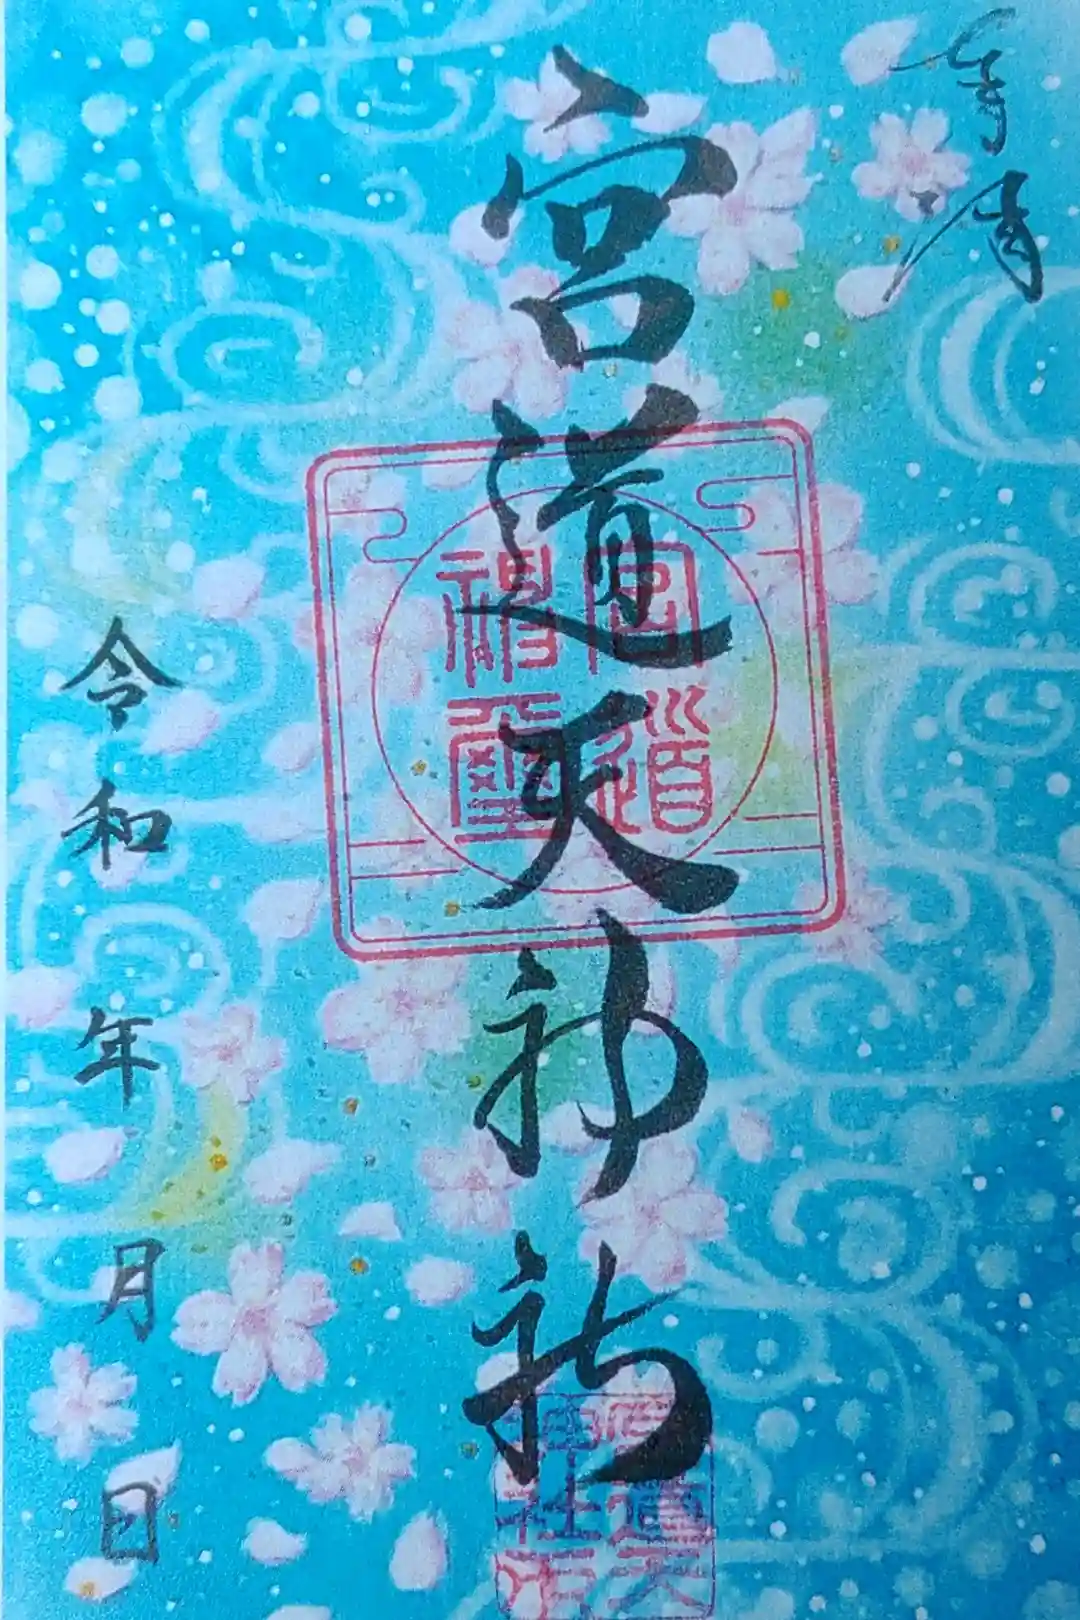 奉拝
宮道天神社
宮道神璽
令和 年 月 日